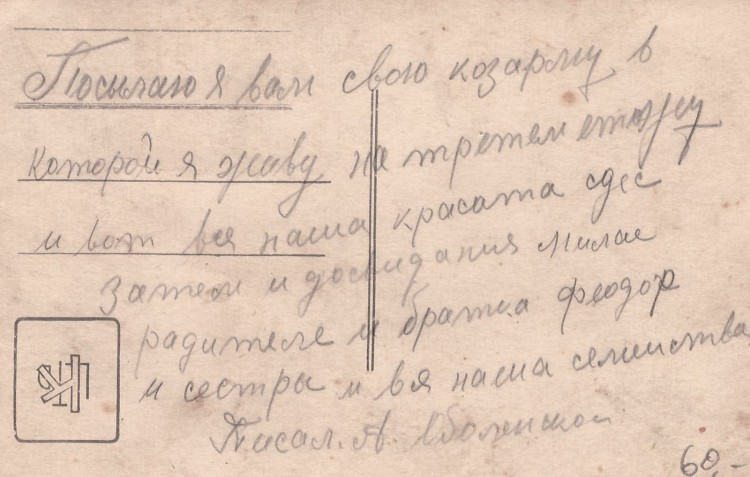 Посылаю я вам свою козарму в
которой я живу на третем етажу
и вот вся наша красата сдес
Затем и досвидания милае
радителе и братка феодор
и сестры и вся наша семиства
Писал. А. Оболенской
60,-